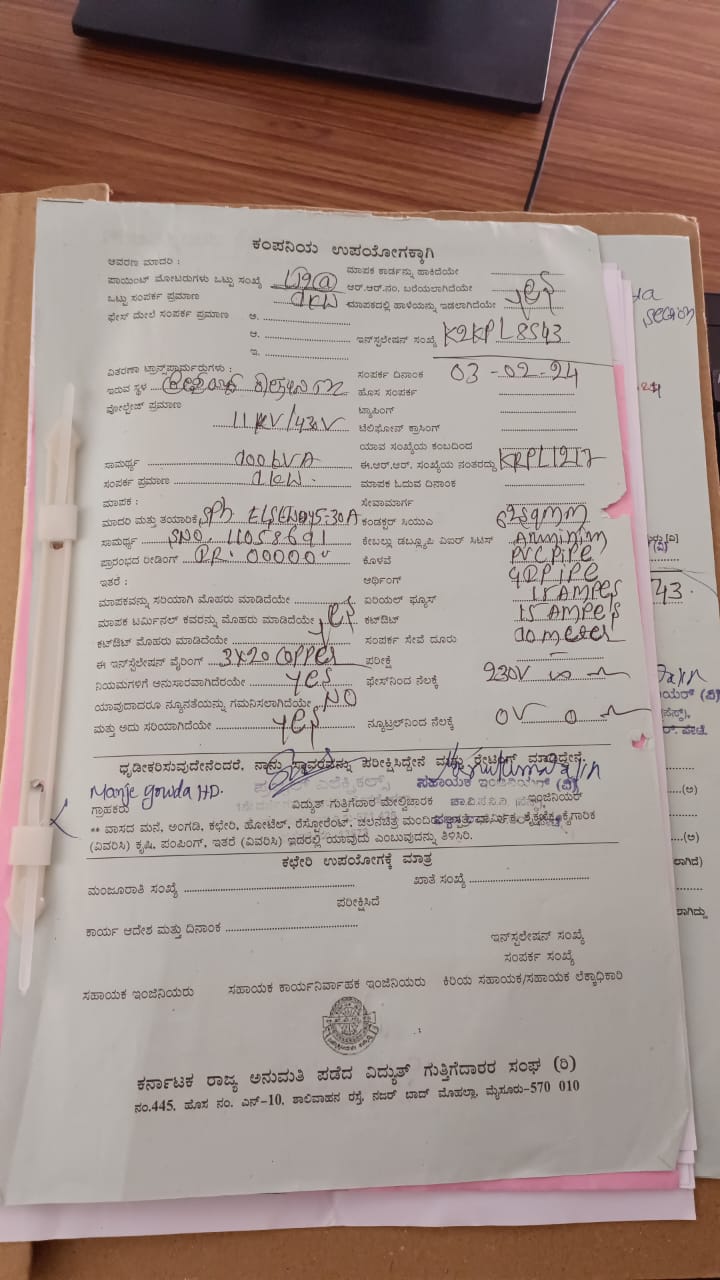 ಕಂಪನಿಯ ಉಪಯೋಗಕ್ಕಾಗಿ
ಆವರಣ ಮಾದರಿ : ಮಾಪಕ ಕಾರ್ಡನ್ನು ಹಾಕಿದೆಯೇ
ಪಾಯಿಂಟ್ ಮೋಟರುಗಳು ಒಟ್ಟು ಸಂಖ್ಯೆ ಆರ್.ಆರ್.ನಂ. ಬರೆಯಲಾಗಿದೆಯೇ
ಒಟ್ಟು ಸಂಪರ್ಕ ಪ್ರಮಾಣ 1KW ಮಾಪಕದಲ್ಲಿ ಹಾಳೆಯನ್ನು ಇಡಲಾಗಿದೆಯೇ yes
ಫೇಸ್ ಮೇಲೆ ಸಂಪರ್ಕ ಪ್ರಮಾಣ ಅ.
ಆ. ಇನ್‌ಸ್ಟಲೇಷನ್ ಸಂಖ್ಯೆ K2KPL8543
ಇ.
ವಿತರಣಾ ಟ್ರಾನ್ಸ್‌ಫಾರ್ಮರುಗಳು : ಸಂಪರ್ಕ ದಿನಾಂಕ 03-02-24
ಇರುವ ಸ್ಥಳ ಹೊಸ ಸಂಪರ್ಕ
ವೋಲ್ಟೇಜ್ ಪ್ರಮಾಣ 11KV/430V ಟ್ಯಾಪಿಂಗ್
ಟೆಲಿಫೋನ್ ಕ್ರಾಸಿಂಗ್
ಯಾವ ಸಂಖ್ಯೆಯ ಕಂಬದಿಂದ
ಸಾಮರ್ಥ್ಯ 100KVA ಈ.ಆರ್.ಆರ್. ಸಂಖ್ಯೆಯ ನಂತರದ್ದು KRPL1217
ಸಂಪರ್ಕ ಪ್ರಮಾಣ 1KW. ಮಾಪಕ ಓದುವ ದಿನಾಂಕ
ಮಾಪಕ : ಸೇವಾಮಾರ್ಗ
ಮಾದರಿ ಮತ್ತು ತಯಾರಿಕೆ 5-30A ಕಂಡಕ್ಟರ್ ಸಿಯುಎ 6 2sqmm
ಸಾಮರ್ಥ್ಯ SNO. 11058691 ಕೇಬಲ್ಲು ಡಬ್ಲ್ಯೂಪಿ ವಿಐಆರ್ ಸಿಟಿಸ್ Aruminim
ಪ್ರಾರಂಭದ ರೀಡಿಂಗ್ PR: 00000 ಕೊಳವೆ PVC PiPe
ಇತರೆ : ಅರ್ಥಿಂಗ್ GI PiPe
ಮಾಪಕವನ್ನು ಸರಿಯಾಗಿ ಮೊಹರು ಮಾಡಿದೆಯೇ ಏರಿಯಲ್ ಫ್ಯೂಸ್ 15 AMPeS
ಮಾಪಕ ಟರ್ಮಿನಲ್ ಕವರನ್ನು ಮೊಹರು ಮಾಡಿದೆಯೇ yes ಕಟ್‌ಔಟ್ 15 AMPe's
ಕಟ್‌ಔಟ್ ಮೊಹರು ಮಾಡಿದೆಯೇ ಸಂಪರ್ಕ ಸೇವೆ ದೂರು 10 meter
ಈ ಇನ್‌ಸ್ಟಲೇಷನ್ ವೈರಿಂಗ್ 3X20 COPPer ಪರೀಕ್ಷೆ
ನಿಯಮಗಳಿಗೆ ಅನುಸಾರವಾಗಿದೆರೆಯೇ yes ಫೇಸ್‌ನಿಂದ ನೆಲಕ್ಕೆ 230V
ಯಾವುದಾದರೂ ನ್ಯೂನತೆಯನ್ನು ಗಮನಿಸಲಾಗಿದೆಯೇ NO
ಮತ್ತು ಅದು ಸರಿಯಾಗಿದೆಯೇ yes ನ್ಯೂಟ್ರಲ್‌ನಿಂದ ನೆಲಕ್ಕೆ 0V 0
ಧೃಡೀಕರಿಸುವುದೇನೆಂದರೆ, ನಾನು ಸ್ಥಾವರವನ್ನು ಪರೀಕ್ಷಿಸಿದ್ದೇನೆ ಮತ್ತು ರೇಟಿಂಗ್ ಮಾಡಿದ್ದೇನೆ.
Manje gowda HD. ಸಹಾಯಕ ಇಂಜಿನಿಯರ್ (ವಿ)
ಗ್ರಾಹಕರು ವಿದ್ಯುತ್ ಗುತ್ತಿಗೆದಾರ ಮೇಲ್ವಿಚಾರಕ ಇಂಜಿನಿಯರ್
** ವಾಸದ ಮನೆ, ಅಂಗಡಿ, ಕಛೇರಿ, ಹೋಟೆಲ್, ರೆಸ್ಟೋರೆಂಟ್, ಚಲನಚಿತ್ರ ಮಂದಿರ ಕೈಗಾರಿಕ
(ವಿವರಿಸಿ) ಕೃಷಿ, ಪಂಪಿಂಗ್, ಇತರೆ (ವಿವರಿಸಿ) ಇದರಲ್ಲಿ ಯಾವುದು ಎಂಬುವುದನ್ನು ತಿಳಿಸಿರಿ.
ಕಛೇರಿ ಉಪಯೋಗಕ್ಕೆ ಮಾತ್ರ
ಮಂಜೂರಾತಿ ಸಂಖ್ಯೆ ಖಾತೆ ಸಂಖ್ಯೆ
ಪರೀಕ್ಷಿಸಿದೆ
ಕಾರ್ಯ ಆದೇಶ ಮತ್ತು ದಿನಾಂಕ
ಇನ್‌ಸ್ಟಲೇಷನ್ ಸಂಖ್ಯೆ
ಸಂಪರ್ಕ ಸಂಖ್ಯೆ
ಸಹಾಯಕ ಇಂಜಿನಿಯರು ಸಹಾಯಕ ಕಾರ್ಯನಿರ್ವಾಹಕ ಇಂಜಿನಿಯರು ಕಿರಿಯ ಸಹಾಯಕ/ಸಹಾಯಕ ಲೆಕ್ಕಾಧಿಕಾರಿ
ಕರ್ನಾಟಕ ರಾಜ್ಯ ಅನುಮತಿ ಪಡೆದ ವಿದ್ಯುತ್ ಗುತ್ತಿಗೆದಾರರ ಸಂಘ (ರಿ)
ನಂ.445, ಹೊಸ ನಂ. ಎನ್-10, ಶಾಲಿವಾಹನ ರಸ್ತೆ, ನಜರ್ ಬಾದ್ ಮೊಹಲ್ಲಾ, ಮೈಸೂರು-570 010